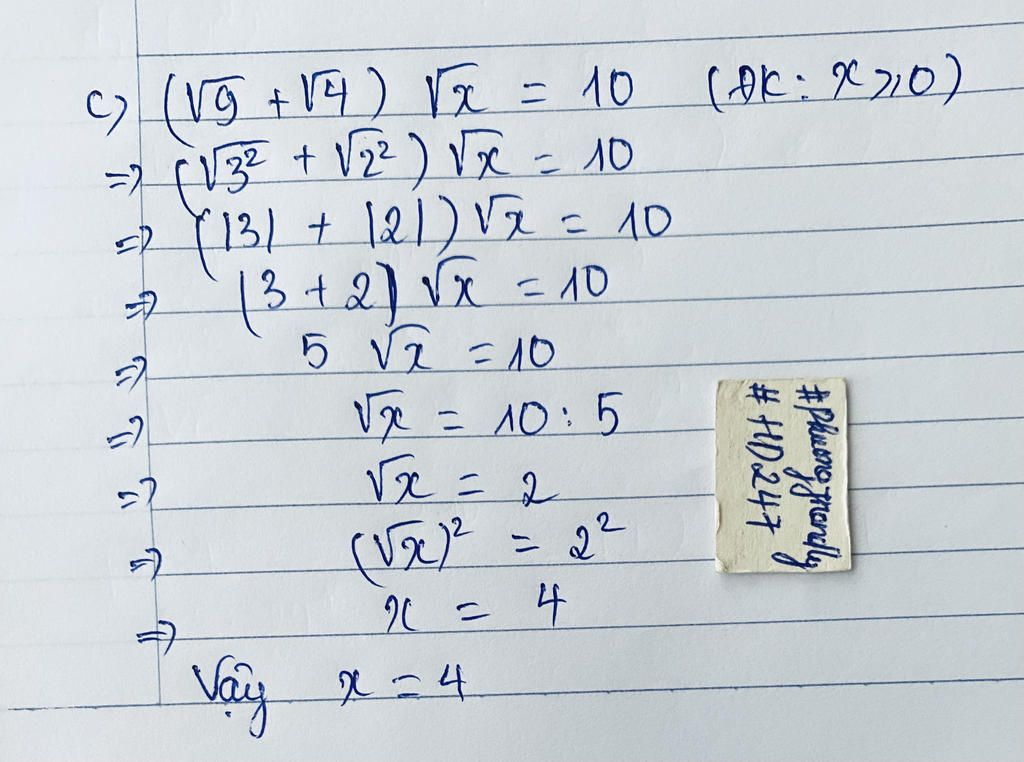 c) (√9 + √4) √x = 10 (ĐK: x ⩾ 0)
=> (√3² + √2²) √x = 10
=> (|3| + |2|) √x = 10
=> (3 + 2) √x = 10
=> 5 √x = 10
=> √x = 10 : 5
=> √x = 2
=> (√x)² = 2²
=> x = 4
Vậy x = 4
# HD247